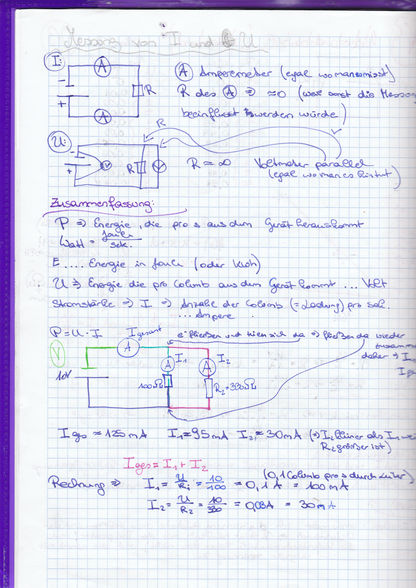 Messung von I und U
I:
A
A
R
A Amperemeter (egal wo man es misst)
R des A ⇒ ≈0 (weil sonst die Messung
beeinflusst werden würde)
U:
R
V
R
R = ∞ Voltmeter parallel
(egal wo man es hintut)
Zusammenfassung:
P ⇒ Energie, die pro s aus dem Gerät herauskommt
Watt = Joule/sek.
E .... Energie in Joule (oder KWh)
U ⇒ Energie die pro Columb aus dem Gerät kommt ... Volt
Stromstärke ⇒ I ⇒ Anzahl der Columb (= Ladung) pro sek.
... Ampere
P = U · I
I gesamt
e⁻ fließen und teilen sich da ⇒ fließen da wieder
zusammen
daher ⇒
V
A
A I₁
A I₂
10V
100Ω
R₂ = 330Ω
I ges = 125mA I₁ = 95mA I₂ = 30mA (⇒ I₂ kleiner als I₁ weil
R₂ größer ist)
I ges = I₁ + I₂
(0,1 Columb pro s durch Leiter)
Rechnung ⇒ I₁ = U/R₁ = 10/100 = 0,1 A = 100 mA
I₂ = U/R₂ = 10/330 = 0,03A = 30 mA